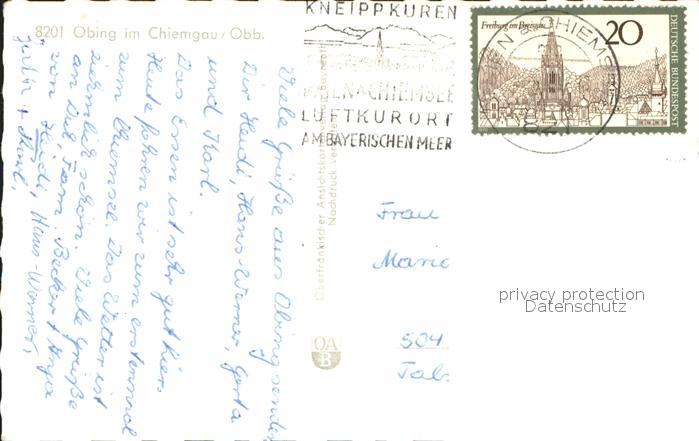 8201 Obing im Chiemgau/Obb.
KNEIPPKUREN
PRIEN A CHIEMSEE
LUFTKURORT
AM BAYERISCHEN MEER
Freiburg im Breisgau
20
DEUTSCHE BUNDESPOST
Viele Grüße aus Obing senden
Dir Heidi, Hans-Werner, Gerta
und Karl.
Das Essen ist sehr gut hier.
Heute fahren wir zum erstenmal
zum Chiemsee. Das Wetter ist
schön. Viele Grüße
an Dich, Fam. Becker + Anja
von Heidi, Hans-Werner,
+ Karl.
Oberfränkischer Ansichtskartenverlag
Nachdruck verboten
OA
B
Frau
Marie
504
privacy protection
Datenschutz